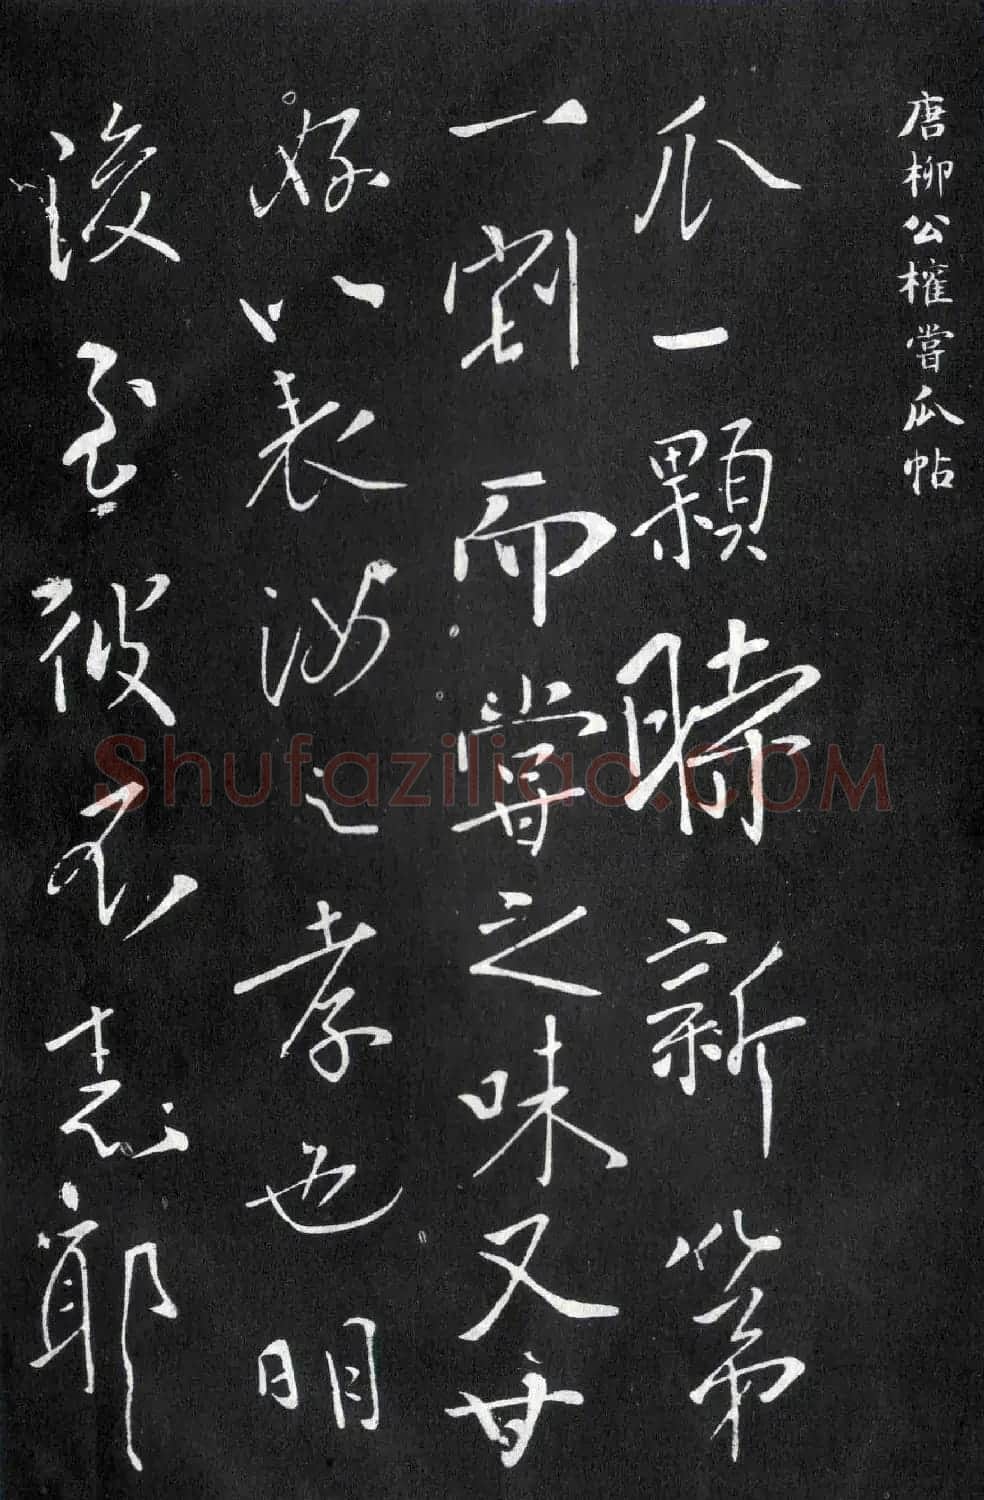 唐柳公權嘗瓜帖
瓜一顆時新第
一割而嘗之味又甘
好以表汝之孝也明
後至彼不志耶
Shufaziliao.COM